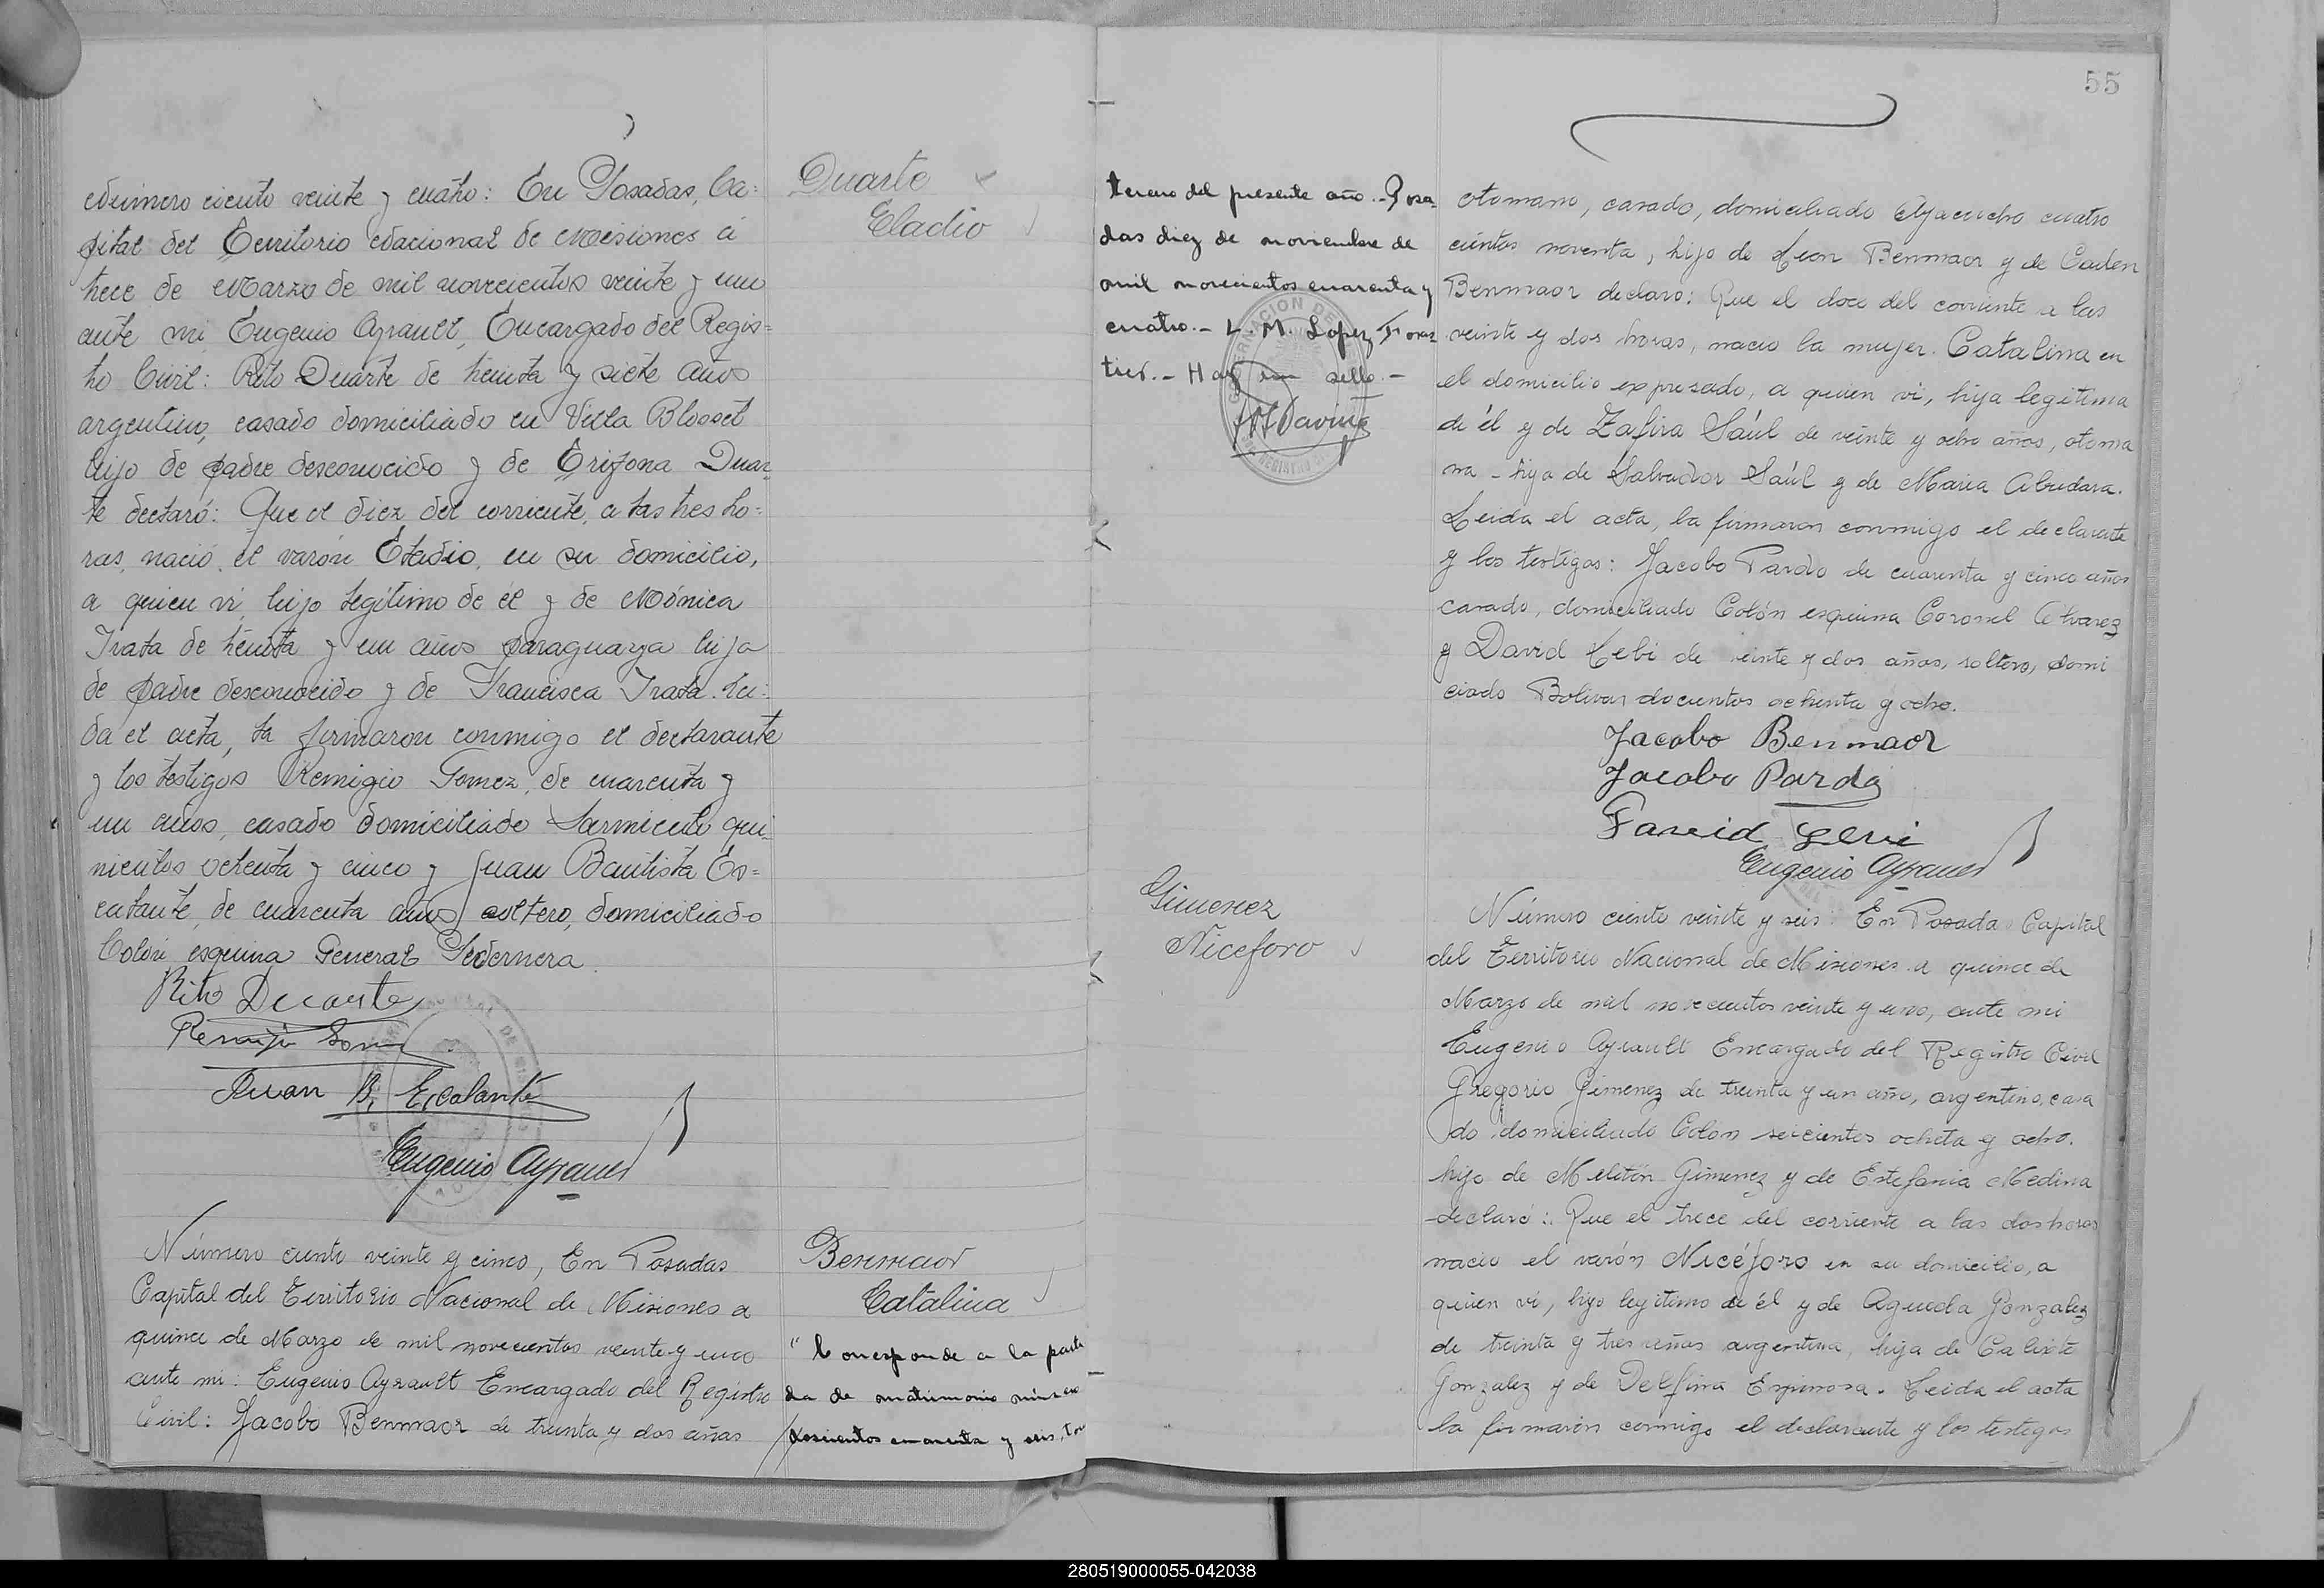 Número ciento veinte y cuatro: En Posadas, Ca=
pital del Territorio Nacional de Misiones á
trece de Marzo de mil novecientos veinte y uno
ante mi, Eugenio Ayrault, Encargado del Regis=
tro Civil: Rito Duarte de treinta y siete años
argentino, casado domiciliado en Villa Blosset
hijo de padre desconocido y de Duar=
te declaró: Que el diez del corriente, a las tres ho=
ras, nació el varón Eladio, en su domicilio,
a quien vi, hijo legítimo de él y de Mónica
Irala de treinta y un años paraguaya hija
de padre desconocido y de Francisca Irala. Leí=
da el acta, la firmaron conmigo el declarante
y los testigos Remigio Gomez, de cuarenta y
un años, casado domiciliado Sarmiento qui=
nientos ochenta y cinco y Juan Bautista Es=
calante, de cuarenta años, soltero, domiciliado
Colón esquina General Pedernera.
Rito Ducarte
Juan B. Escalante
Eugenio Ayrault
Duarte
Eladio
Número ciento veinte y cinco, En Posadas
Capital del Territorio Nacional de Misiones a
quince de Marzo de mil novecientos veinte y uno
ante mi: Eugenio Ayrault Encargado del Registro
Civil: Jacobo Benmaor de treinta y dos años
Benmaor
Catalina
"Corresponde a la parti
da de matrimonio número
doscientos cuarenta y seis, to
55
tercero del presente año.- Posa-
das diez de noviembre de
mil novecientos cuarenta y
cuatro.- L. M. Lopez Foras
tier.- Hay un sello.-
otomano, casado, domiciliado Ayacucho cuatro
cientos noventa, hijo de Leon Benmaor y de Caden
Benmaor declaro: Que el doce del corriente a las
veinte y dos horas, nacio la mujer Catalina en
el domicilio expresado, a quien vi, hija legitima
de él y de Zafira Saúl de veinte y ocho años, otoma
na - hija de Salvador Saúl y de Maria Abudara.
Leida el acta, la firmaron conmigo el declarante
y los testigos: Jacobo Pardo de cuarenta y cinco años
casado, domiciliado Colón esquina Coronel Alvarez
y David Lebi de veinte y dos años, soltero, domi
ciado Bolivar docientos ochenta y ocho.
Jacobo Benmaor
Jacobo Pardo
David Levi
Eugenio Ayrault
Gimenez
Niceforo
Número ciento veinte y seis: En Posadas Capital
del Territorio Nacional de Misiones a quince de
Marzo de mil novecientos veinte y uno, ante mi
Eugenio Ayrault Encargado del Registro Civil
Gregorio Gimenez de treinta y un año, argentino, casa
do domiciliado Colón seicientos ocheta y ocho.
hijo de Melitón Gimenez y de Estefania Medina
declaró: Que el trece del corriente a las dos horas
nacio el varón Nicéforo en su domicilio, a
quien vi, hijo legitimo de él y de Agueda Gonzalez
de treinta y tres años argentina, hija de Calixto
Gonzalez y de Delfina Espinosa. Leida el acta
la firmaron conmigo el declarante y los testigos
280519000055-042038